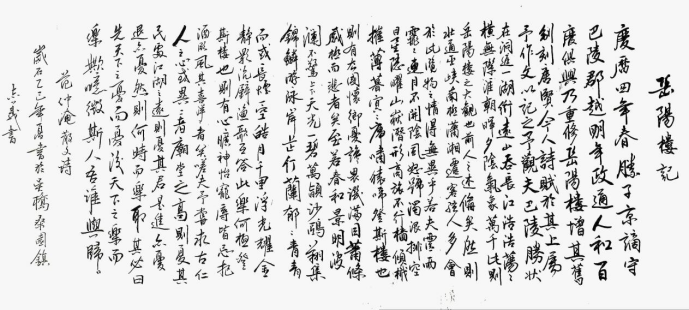 岳陽樓記
慶曆四年春滕子京謫守
巴陵郡越明年政通人和百
廢俱興乃重修岳陽樓增其舊
制刻唐賢今人詩賦於其上屬
予作文以記之予觀夫巴陵勝狀
在洞庭一湖銜遠山吞長江浩浩蕩蕩
橫無際涯朝暉夕陰氣象萬千此則
岳陽樓之大觀也前人之述備矣然則
北通巫峽南極瀟湘遷客騷人多會
於此覽物之情得無異乎若夫霪雨
霏霏連月不開陰風怒號濁浪排空
日星隱耀山岳潛形商旅不行檣傾楫
摧薄暮冥冥虎嘯猿啼登斯樓也
則有去國懷鄉憂讒畏譏滿目蕭條
感極而悲者矣至若春和景明波
瀾不驚上下天光一碧萬頃沙鷗翔集
錦鱗游泳岸芷汀蘭郁郁青青
而或長煙一空皓月千里浮光耀金
靜影沉璧漁歌互答此樂何極登
斯樓也則有心曠神怡寵辱皆忘把
酒臨風其喜洋洋者矣嗟夫予嘗求古仁
人之心或異二者
廟堂之高則憂其
民處江湖
則憂其君是進亦憂
退亦憂然則何時而樂耶其必曰
先天下之憂而憂後天下之樂而
樂歟噫微斯人吾誰與歸
范仲淹散文詩
歲在乙
書於
志武書